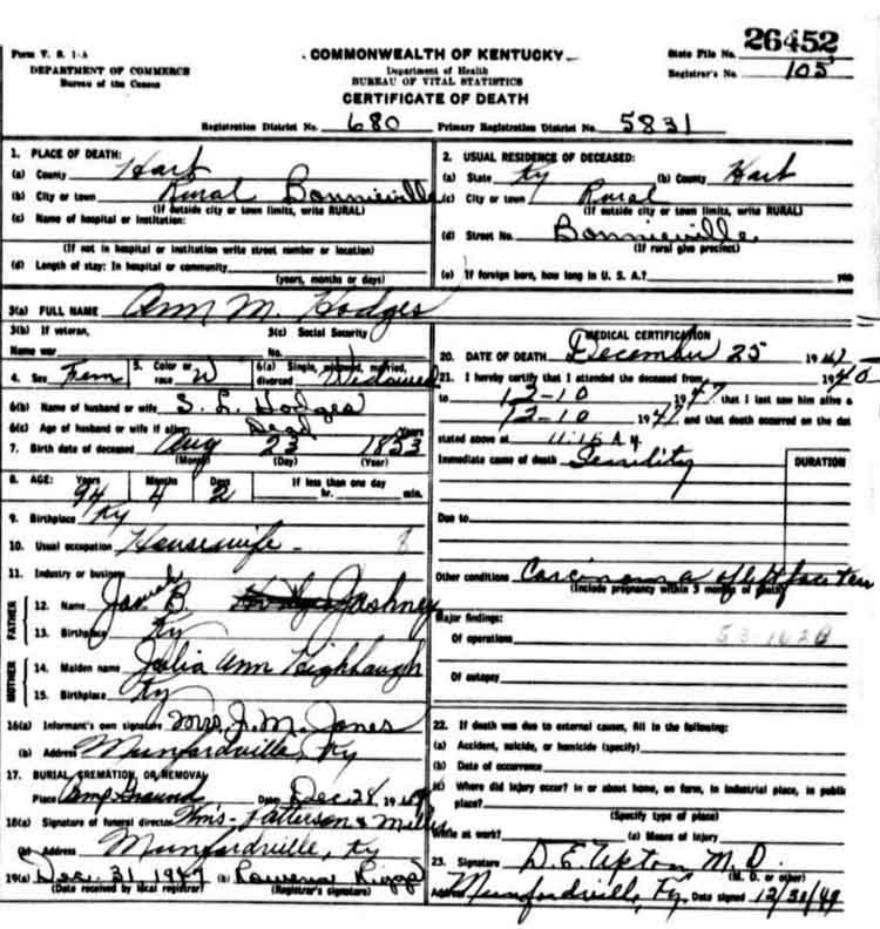 Form V. S. 1-A
DEPARTMENT OF COMMERCE
Bureau of the Census
COMMONWEALTH OF KENTUCKY
Department of Health
BUREAU OF VITAL STATISTICS
CERTIFICATE OF DEATH
State File No. 26452
Registrar's No. 105
Registration District No. 680 Primary Registration District No. 5831
1. PLACE OF DEATH:
(a) County Hart
(b) City or town Rural Bonnieville
(If outside city or town limits, write RURAL)
(c) Name of hospital or institution:
(If not in hospital or institution write street number or location)
(d) Length of stay: In hospital or community
(years, months or days)
2. USUAL RESIDENCE OF DECEASED:
(a) State Ky (b) County Hart
(c) City or town Rural
(If outside city or town limits, write RURAL)
(d) Street No. Bonnieville
(If rural give precinct)
(e) If foreign born, how long in U. S. A.?
3(a) FULL NAME Ann M. Hodges
3(b) If veteran,
Name war
3(c) Social Security
No.
4. Sex Fem 5. Color or race W 6(a) Single, widowed, married, divorced Widowed
6(b) Name of husband or wife S. L. Hodges
6(c) Age of husband or wife if alive Dead Years
7. Birth date of deceased Aug 23 1853
(Month) (Day) (Year)
8. AGE: Years 94 Months 4 Days 2 If less than one day
hr. min.
9. Birthplace Ky
10. Usual occupation Housewife
11. Industry or business
FATHER
12. Name B.
13. Birthplace Ky
MOTHER
14. Maiden name Julia Ann
15. Birthplace Ky
16(a) Informant's own signature Mrs. J. M. Jones
(b) Address Munfordville, Ky
17. BURIAL, CREMATION, OR REMOVAL
Place Camp Ground Date Dec. 28 19
18(a) Signature of funeral director Patterson &
(b) Address Munfordville, Ky
19(a) Dec. 31, 1947 (b) Rowena
(Date received by local registrar) (Registrar's signature)
MEDICAL CERTIFICATION
20. DATE OF DEATH December 25 1947
21. I hereby certify that I attended the deceased from 1940
to 12-10 1947 that I last saw him alive o
12-10 1947 and that death occurred on the dat
stated above at 11:15 A M.
Immediate cause of death Senility
DURATION
Due to
Other conditions Carcinoma of left face
(Include pregnancy within 3 months of death)
Major findings:
Of operations
Of autopsy
22. If death was due to external causes, fill in the following:
(a) Accident, suicide, or homicide (specify)
(b) Date of occurrence
(c) Where did injury occur? In or about home, on farm, in industrial place, in public
place?
(Specify type of place)
While at work? (e) Means of Injury
23. Signature D. E. Upton M. D.
(M. D. or other)
Address Munfordville, Ky. Date signed 12/30/49